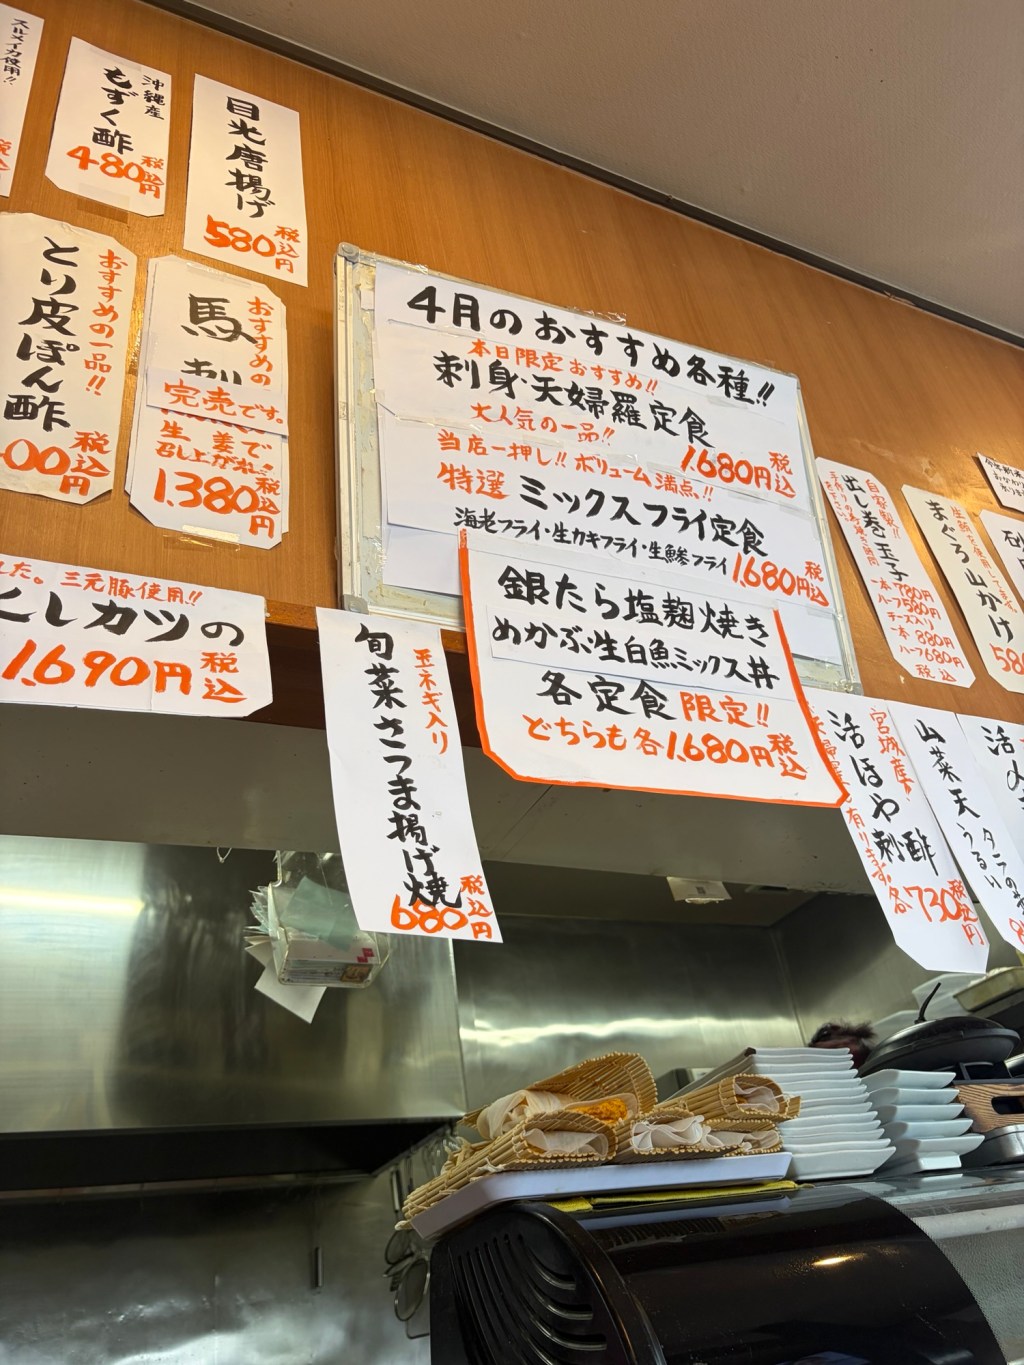 スルメイカ使用!!
税込
沖縄産
もずく酢
480税込円
目光唐揚げ
580税込円
おすすめの一品!!
とり皮ぽん酢
00税込円
おすすめの
馬刺
完売です。
生姜で
召し上がれ!!
1.380税込円
4月のおすすめ各種!!
本日限定おすすめ!!
刺身・天婦羅定食
大人気の一品!!
1.680円税込
当店一押し!!ボリューム満点!!
特選ミックスフライ定食
海老フライ・生カキフライ・生鯵フライ
1.680円税込
銀たら塩麹焼き
めかぶ・生白魚ミックス丼
各定食限定!!
どちらも各1.680円税込
した。三元豚使用!!
ヒレカツの
1.690円税込
玉ネギ入り
旬菜さつま揚げ焼
680税込円
自家製!!
出し巻玉子
一本780円
ハーフ580円
チーズ入り
一本880円
ハーフ680円
税込
まぐろ山かけ
58
宮城産!!
活ほや刺酢
も有ります。
各730税込円
山菜天
タラの
うるい
活〆